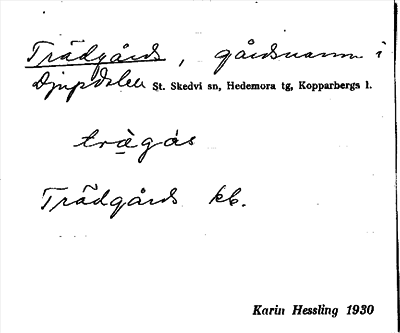 Trädgårds, gårdsnamn i
Djupdalen St. Skedvi sn, Hedemora tg, Kopparbergs l.
trä̀gás
Trädgårds kb.
Karin Hessling 1930